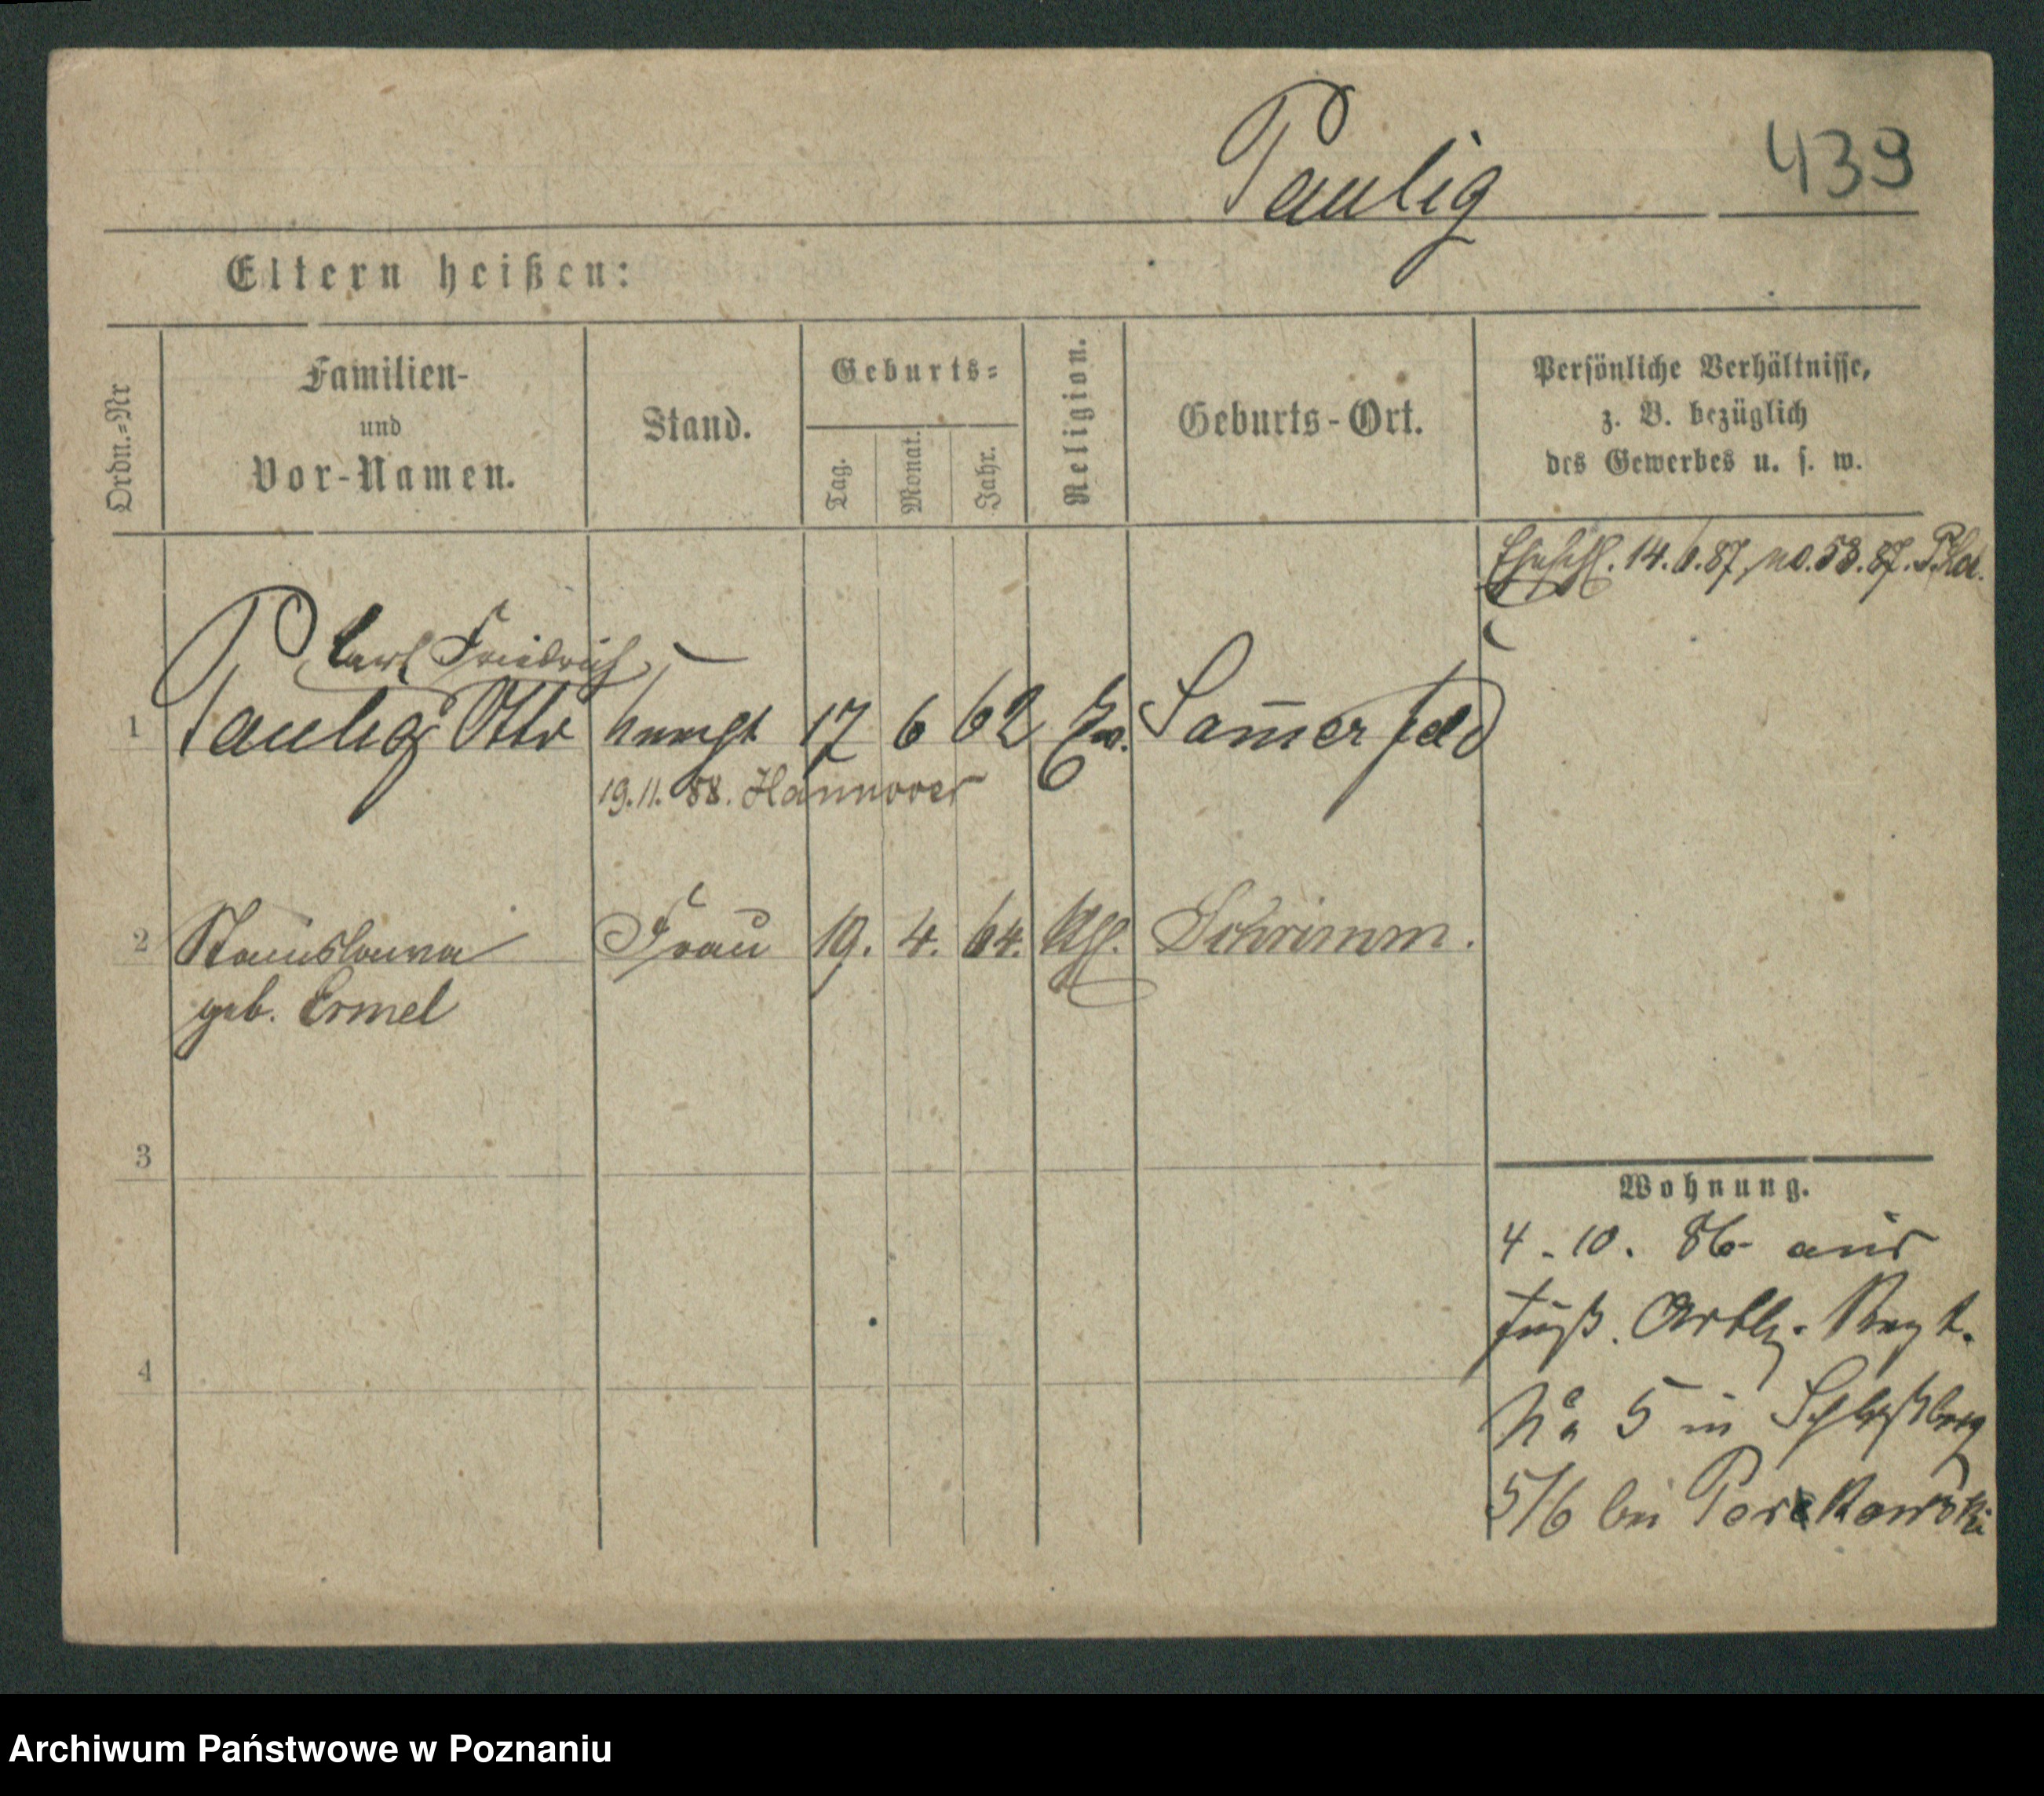 Paulig 439
Eltern heißen:
Ordn.-Nr
Familien-
und
Vor-Namen.
Stand.
Geburts-
Tag.
Monat.
Jahr.
Religion.
Geburts-Ort.
Persönliche Verhältnisse,
z. B. bezüglich
des Gewerbes u. s. w.
14.6.87, no. 58.87.
Carl Friedrich
1 Paulig Otto 17 6 62 Ev. Som̄erfeld
19.11.88. Hannover
2 Stanislawa Frau 19. 4. 64. Kth. Schrimm.
geb. Ermel
3
4
Wohnung.
4. 10. 86 aus
Fuß. Artly. Regt.
No 5 in Schloßberg
5/6 bei
Archiwum Państwowe w Poznaniu